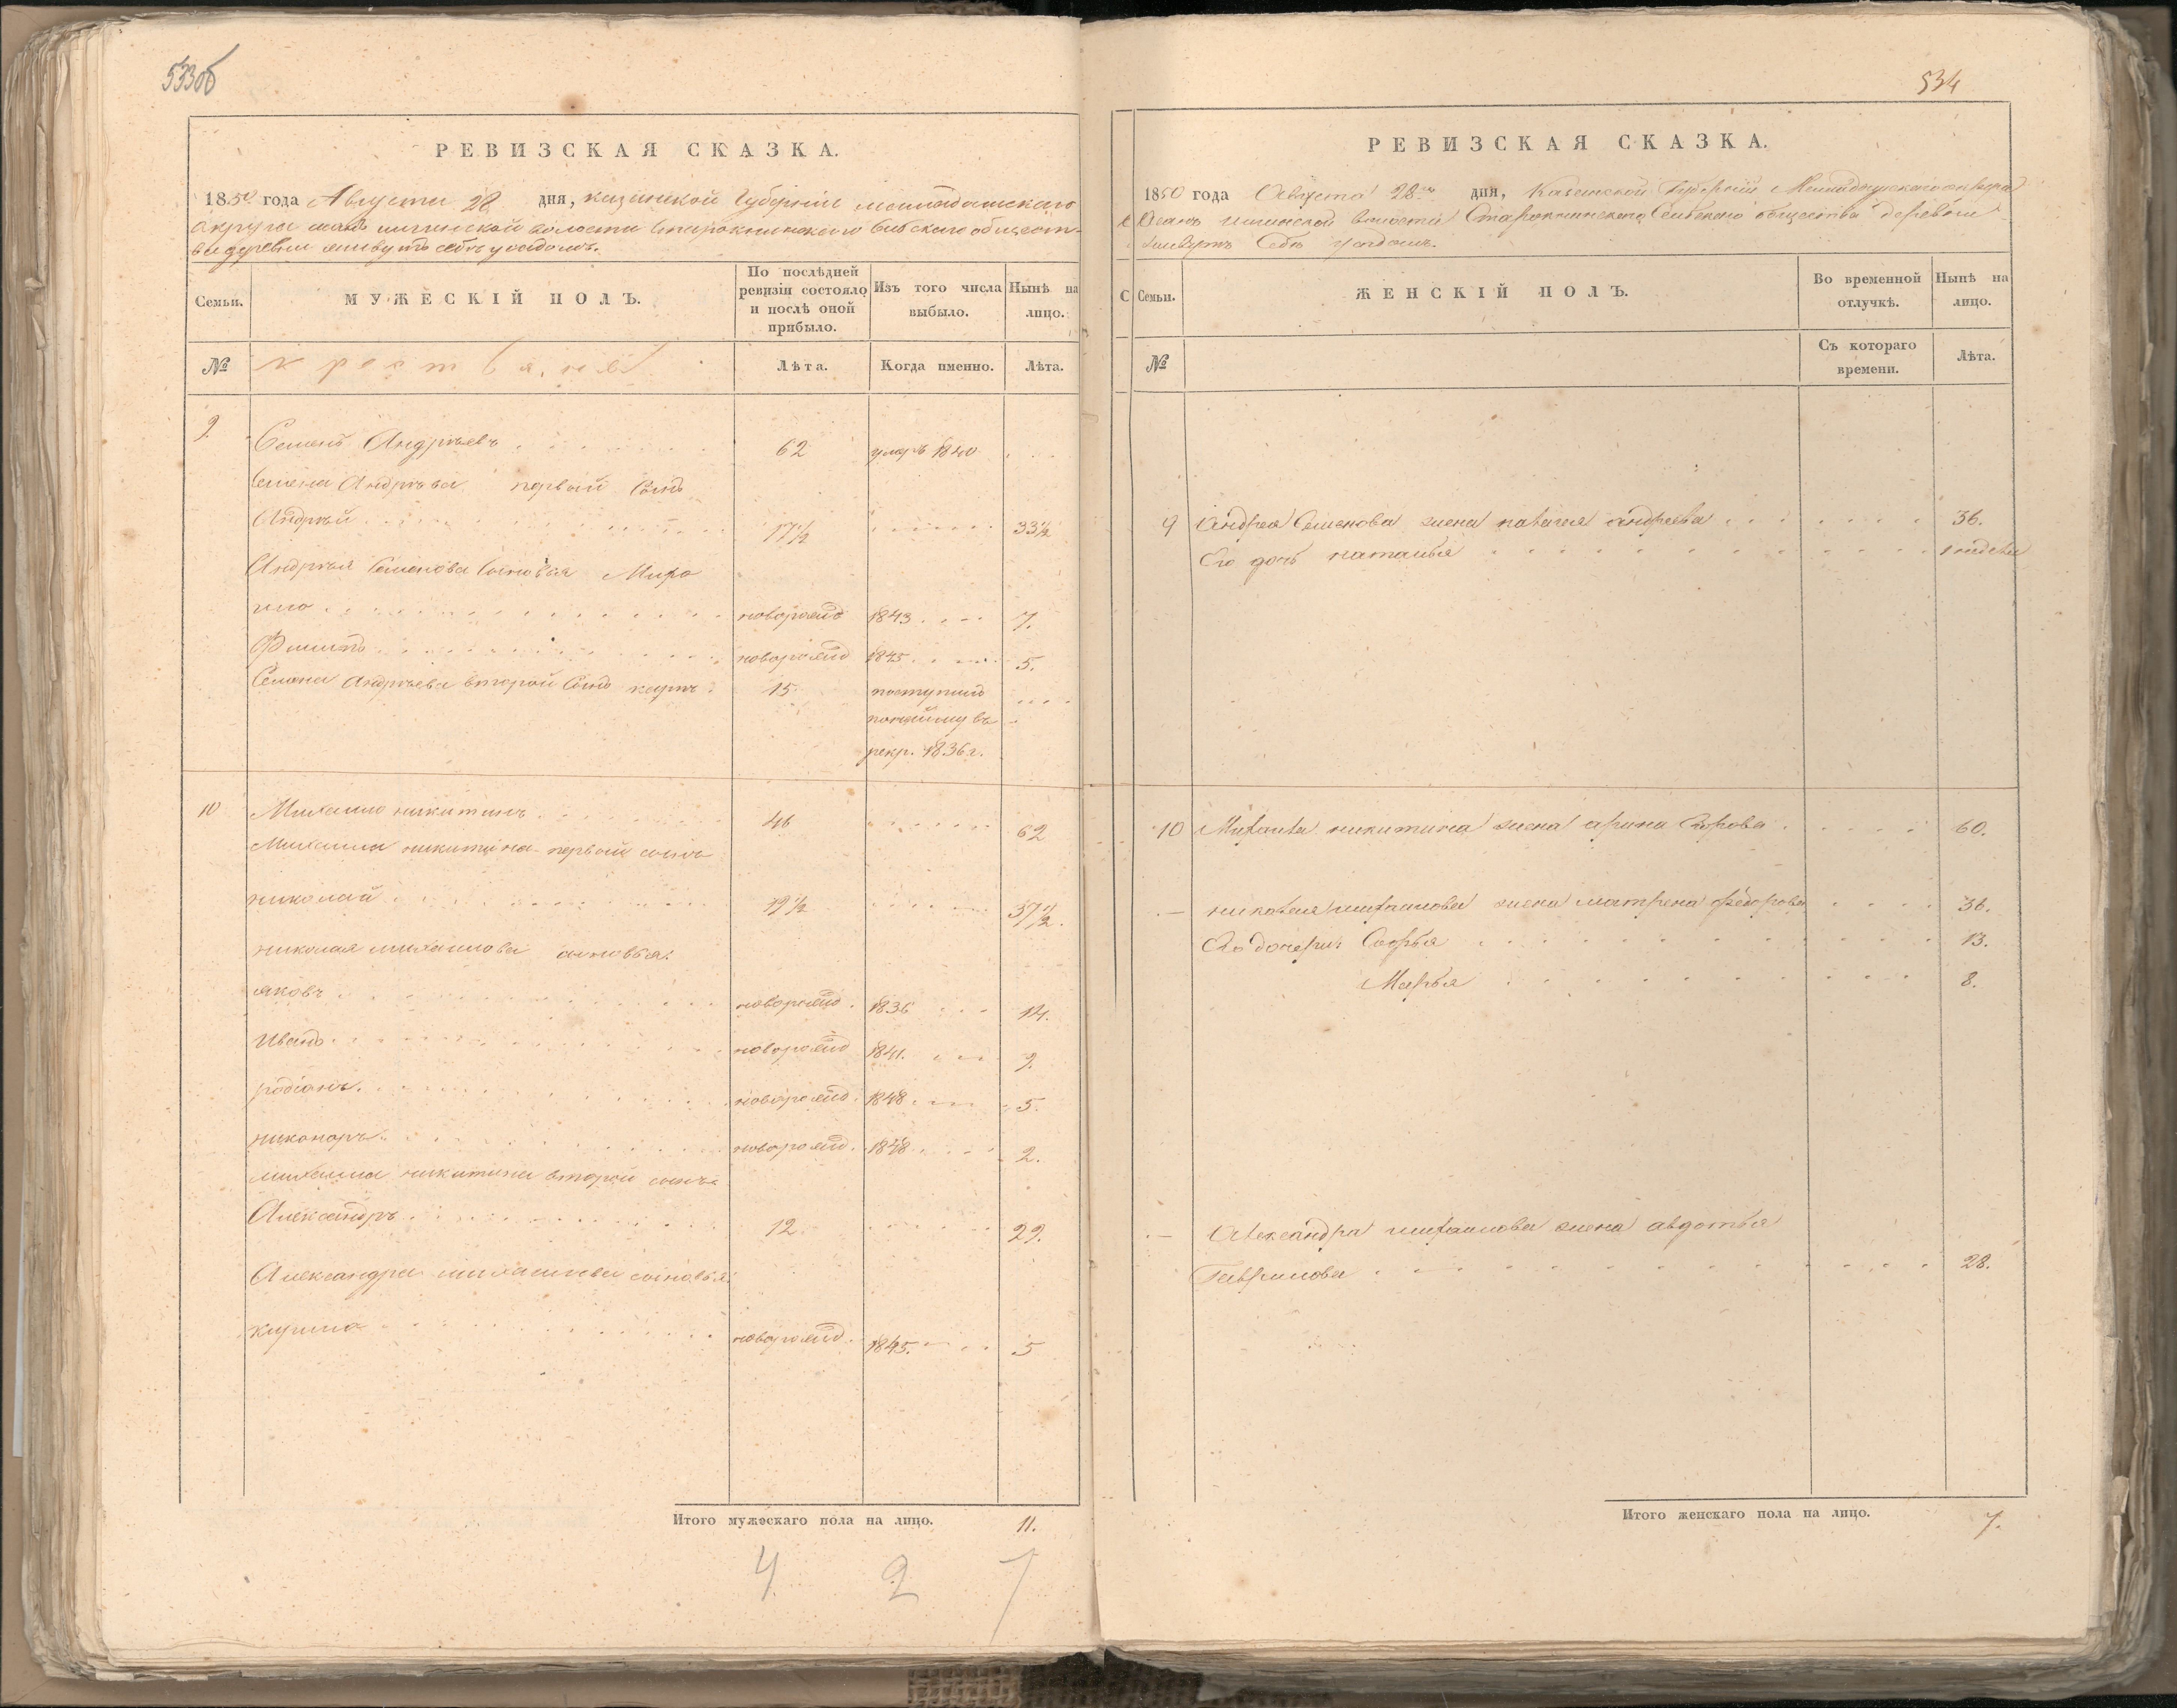 533об
РЕВИЗСКАЯ СКАЗКА.
1850 года Августа 28 дня, казанской Губернии мамадышского
округа волости Старокнинского обществ-
ва деревни
Семьи.
МУЖЕСКІЙ ПОЛЪ.
По послѣдней ревизіи состояло и послѣ оной прибыло.
Изъ того числа выбыло.
Нынѣ на лицо.
№
крестьяне
Лѣта.
Когда именно.
Лѣта.
9. Семенъ Андреевъ 62 умръ 1840
Семена Андреева первый Сынъ
Андрей 17½ 33½
Андрея Семенова Сыновья Миро
новорожд 1843 7.
Филипъ новорожд 1845 5.
Семена Андреева второй Сынъ карпъ 15 поступилъ
по найму въ
рекр. 1836 г.
10 Михаило никитинъ 46 62
Михаила никитина первый сынъ
николай 37½.
николая михаилова сыновья:
яковъ новорожд. 1836 14.
Иванъ новорожд 1841. 9.
родіонъ новорожд. 1848 5.
никоноръ новорожд. 1848 2.
михаила никитина второй сынъ
Александръ 12. 29.
Александра михаилова сыновья:
кирило новорожд. 1845. 5
Итого мужескаго пола на лицо. 11.
4 2 7
534
РЕВИЗСКАЯ СКАЗКА.
1850 года Августа 28го дня, Казанской Губерніи Мамадышскаго округа
волости Старокнинскаго Сельскаго общества деревни
С
Семьи.
ЖЕНСКІЙ ПОЛЪ.
Во временной отлучкѣ.
Нынѣ на лицо.
№
Съ котораго времени.
Лѣта.
9 Андрея Семенова жена андреева 36.
Его дочь наталья 1 недели
10 Михаила никитина жена арина 60.
николая михаилова жена матрена федорова 36.
Его дочери: Софья 13.
Марья 8.
Александра михаилова жена авдотья
Гаврилова 28.
Итого женскаго пола на лицо. 7.